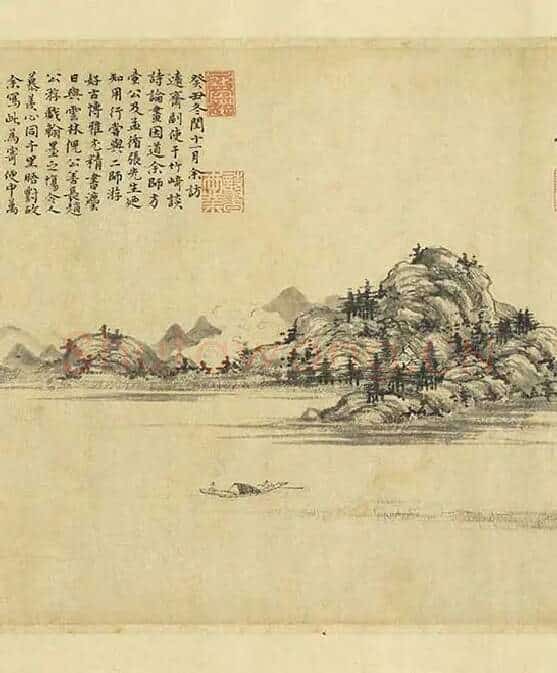 癸丑冬閏十一月余訪
遠齋副使于竹崎談
詩論畫因道余師方
壺公及孟循張先生絕
知用行當與二師游
好古博雅尤精書
日與雲林倪公善長趙
公游戲翰墨之場令人
慕羨心同千里晤對故
余寫此為寄便中萬